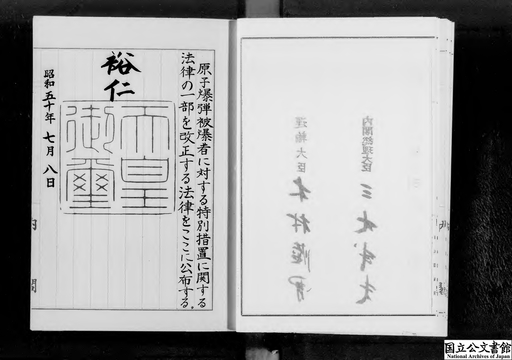 内閣総理大臣
三木武夫
運輸大臣
木村睦男
原子爆弾被爆者に対する特別措置に関する
法律の一部を改正する法律をここに公布する。
裕仁
天皇
御璽
昭和五十年七月八日
内閣
国立公文書館
National Archives of Japan